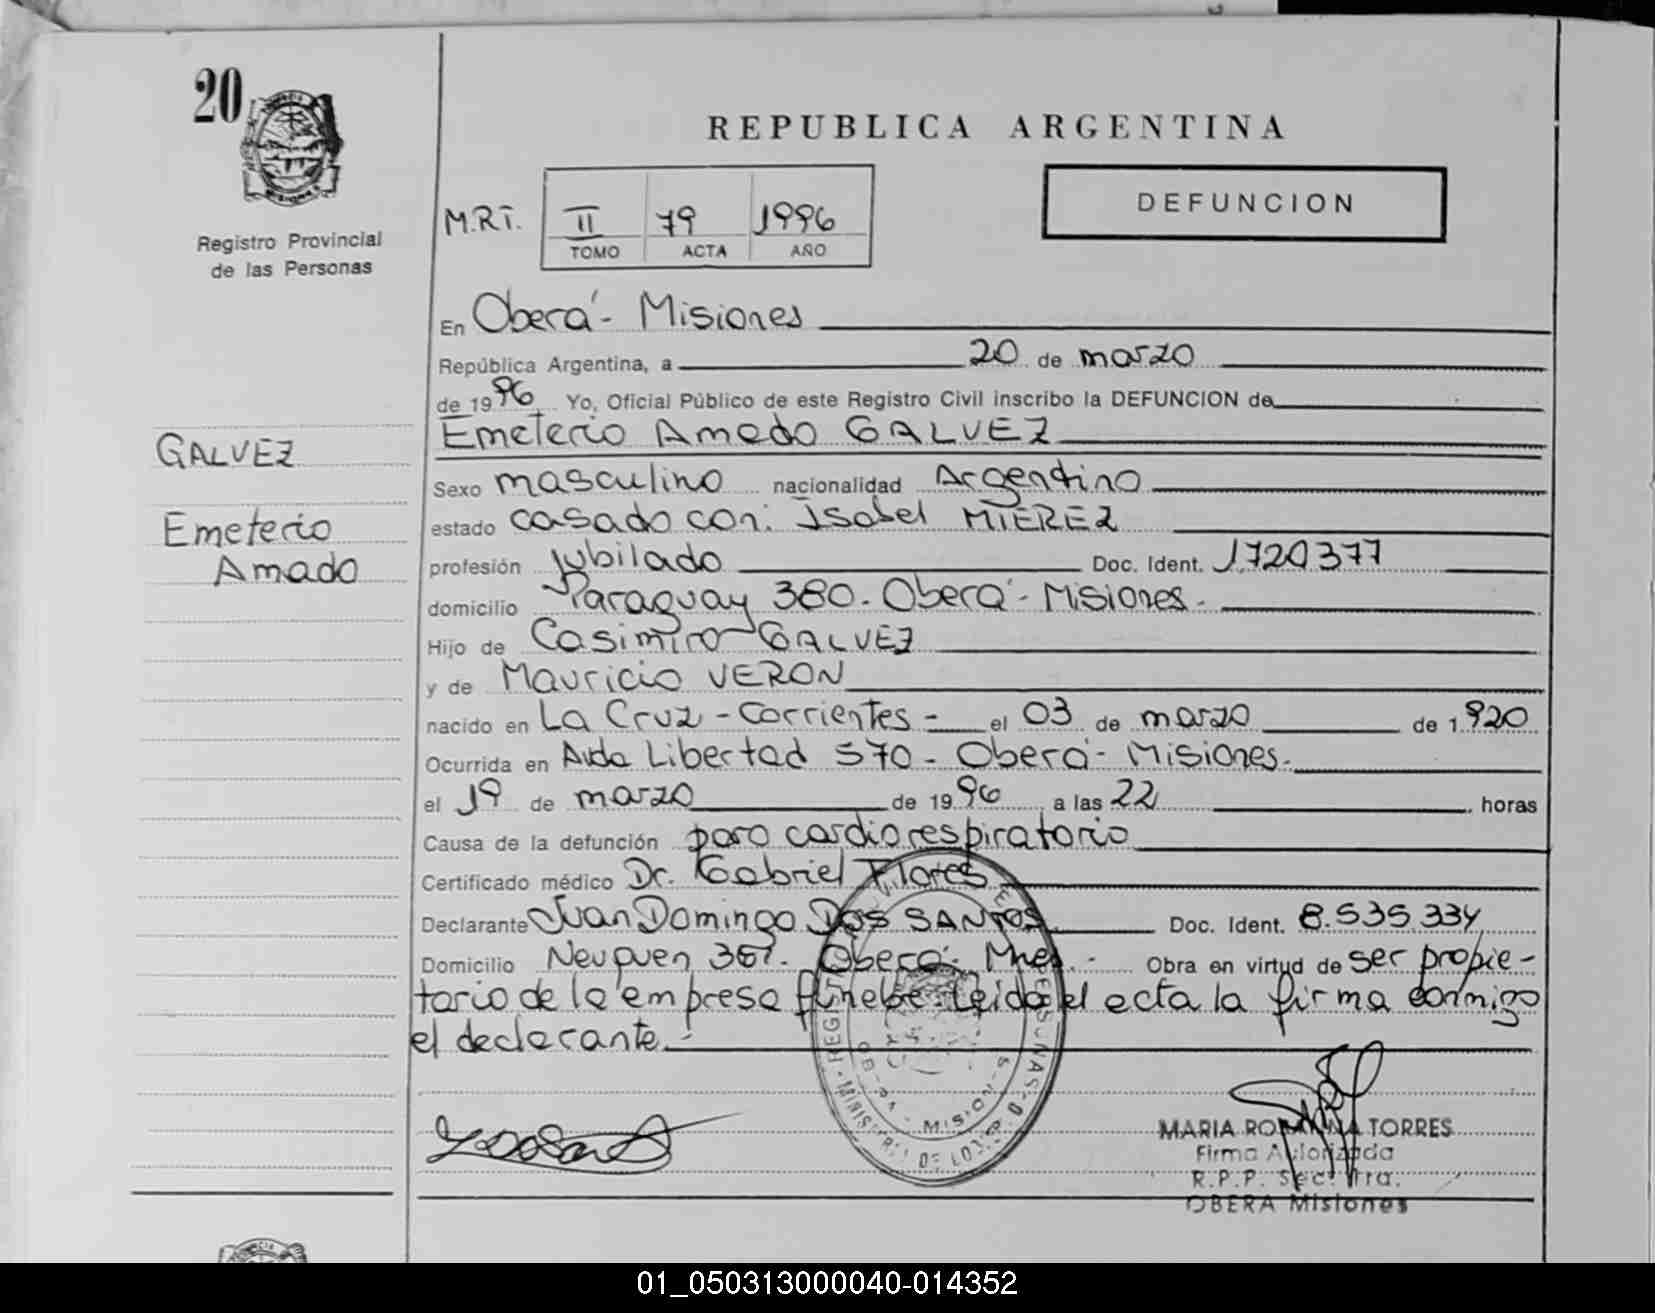 20
Registro Provincial
de las Personas
REPUBLICA ARGENTINA
M.R.T. II 79 1996
TOMO ACTA AÑO
DEFUNCION
GALVEZ
Emeterio
Amado
En Oberá - Misiones
República Argentina, a 20 de marzo
de 1996 Yo, Oficial Público de este Registro Civil inscribo la DEFUNCION de
Emeterio Amado GALVEZ
Sexo masculino nacionalidad Argentino
estado casado con: Isabel MIEREZ
profesión jubilado Doc. Ident. 1.720377
domicilio Paraguay 380 - Oberá - Misiones -
Hijo de Casimiro GALVEZ
y de Mauricio VERON
nacido en La Cruz - Corrientes - el 03 de marzo de 1.920
Ocurrida en Avda Libertad 570 - Oberá - Misiones.
el 19 de marzo de 1996 a las 22 horas
Causa de la defunción paro cardiorespiratorio
Certificado médico Dr. Gabriel Flores
Declarante Juan Domingo DOS SANTOS Doc. Ident. 8.535.334
Domicilio Neuquen 367. Oberá - Mnes. - Obra en virtud de ser propie-
tario de la empresa funebre. Leida el acta la firma conmigo
el declarante. -
MARIA ROMINA TORRES
Firma Autorizada
R.P.P. Sec. 1ra.
OBERA Misiones
01_050313000040-014352